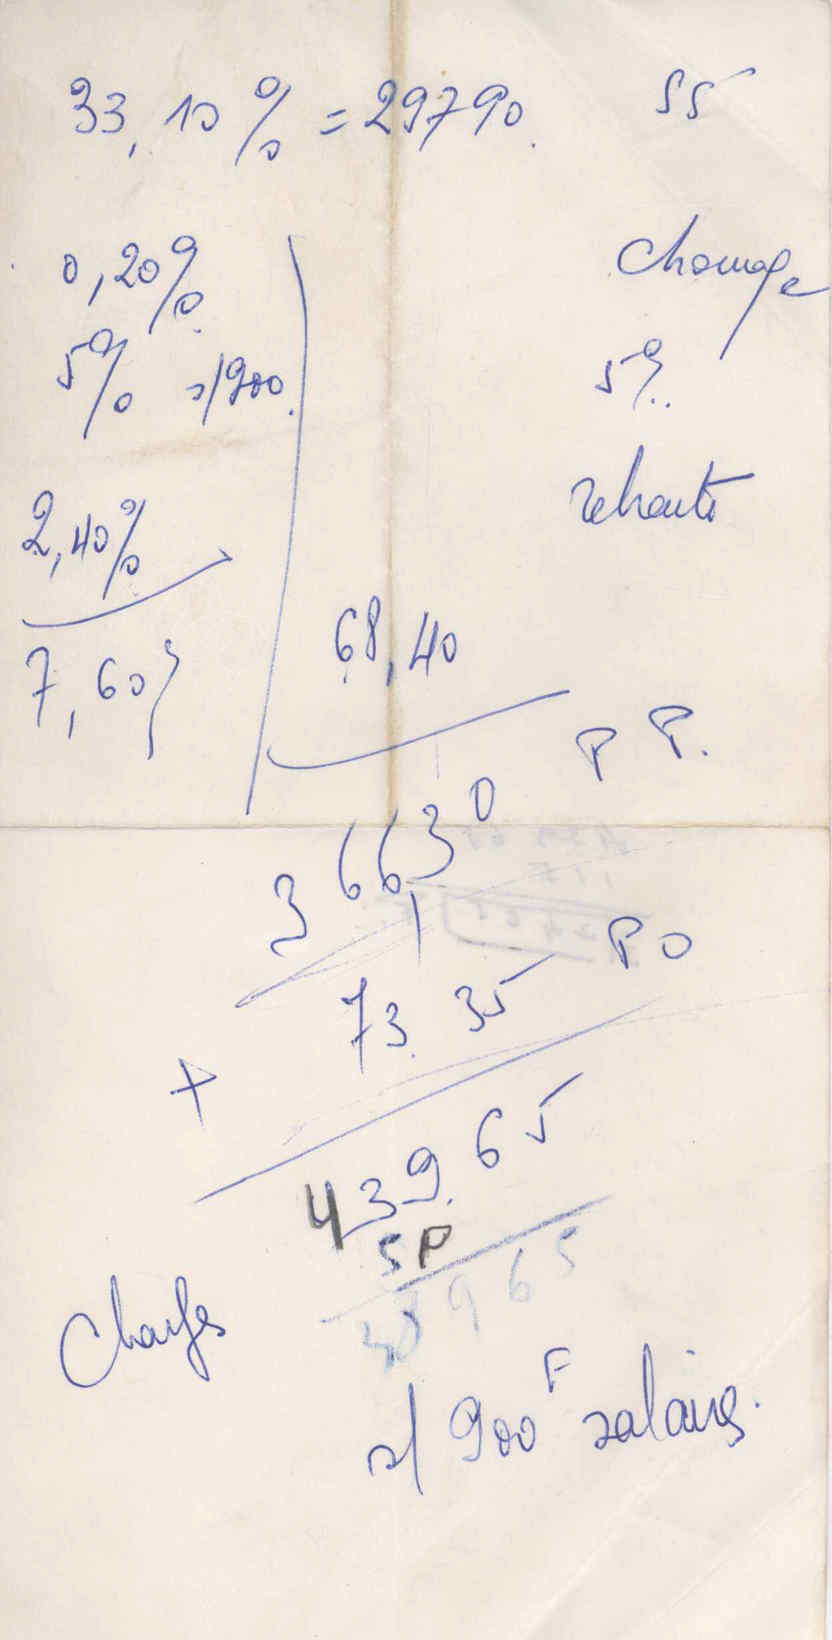 33,10 % = 29790. SS
0,20%. chomage
5% s/900. 5%.
2,40% retraite
7,60%
68,40
36630 PP.
+ 73.35 PO
439.65
5P
965
Charges
s/ 900F salaires.